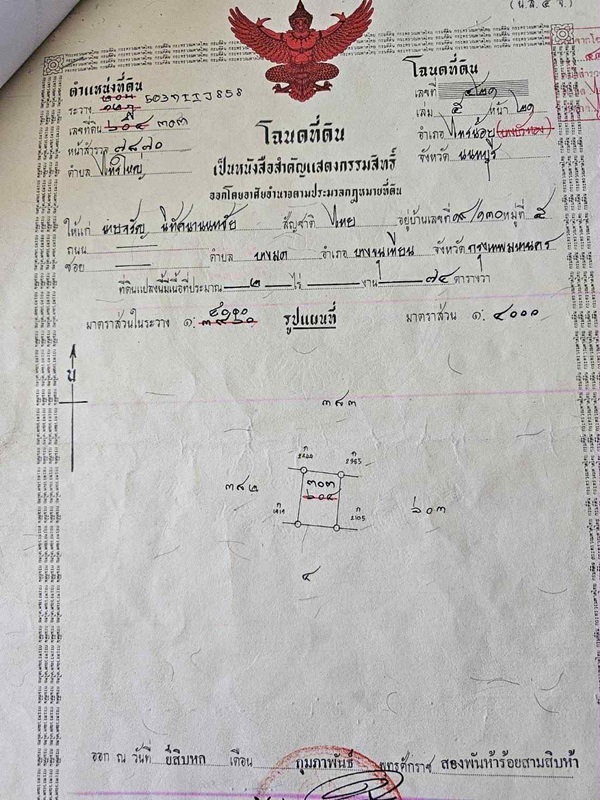 (น.ส. ๔ จ.)
ตำแหน่งที่ดิน
ระวาง 5037 II 3858
เลขที่ดิน ๖๐๔ ๓๐๓
หน้าสำรวจ ๗๘๗๐
ตำบล ไทรใหญ่
โฉนดที่ดิน
เลขที่ ๕๒๑
เล่ม ๕ หน้า ๒๑
อำเภอ ไทรน้อย (บางบัวทอง)
จังหวัด นนทบุรี
โฉนดที่ดิน
เป็นหนังสือสำคัญแสดงกรรมสิทธิ์
ออกโดยอาศัยอำนาจตามประมวลกฎหมายที่ดิน
ให้แก่ สัญชาติ ไทย อยู่บ้านเลขที่ หมู่ที่ ๕
ถนน
ซอย ตำบล บางมด อำเภอ บางขุนเทียน จังหวัด กรุงเทพมหานคร
ที่ดินแปลงนี้มีเนื้อที่ประมาณ ๒ ไร่ งาน ๗๔ ตารางวา
มาตราส่วนในระวาง ๑: รูปแผนที่ มาตราส่วน ๑: ๔๐๐๐
น
๓๘๓
๓๘๒
๓๐๓
๖๐๔
๖๐๓
๔
ออก ณ วันที่ ยี่สิบหก เดือน กุมภาพันธ์ พุทธศักราช สองพันห้าร้อยสามสิบห้า